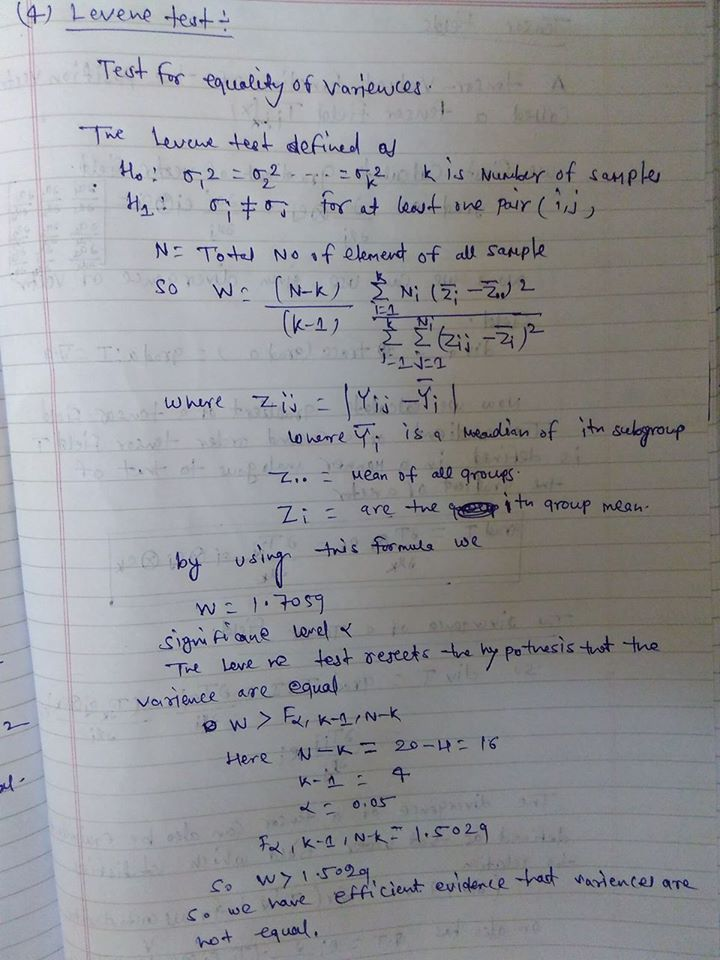 (4) Levene test :-
Test for equality of variences.
The Levene test defined as
H₀ : σ₁2 = σ₂2 ... = σₖ2 k is Number of samples
H₁ : σᵢ ≠ σⱼ for at least one pair (i,j,
N = Total No of element of all sample
So W = (N-k) / (k-1) Σᵢ₌₁ᵏ Nᵢ (Z̄ᵢ - Z̄..)2 / Σᵢ₌₁ᵏ Σⱼ₌₁ᴺⁱ (Zᵢⱼ - Z̄ᵢ)²
where Zᵢⱼ = |Yᵢⱼ - Ȳᵢ|
where Ȳᵢ is a meadian of ith subgroup
Z.. = Mean of all groups.
Zᵢ = are the ith group mean.
by using this formula we
W = 1.7059
significane level α
The Leve ne test rejects the hypothesis that the
varience are equal
W > Fα, k-1, N-k
Here N-k = 20-4 = 16
k-1 = 4
α = 0.05
Fα, k-1, N-k = 1.5029
So W > 1.5029
So we have efficient evidence that variences are
not equal.
2